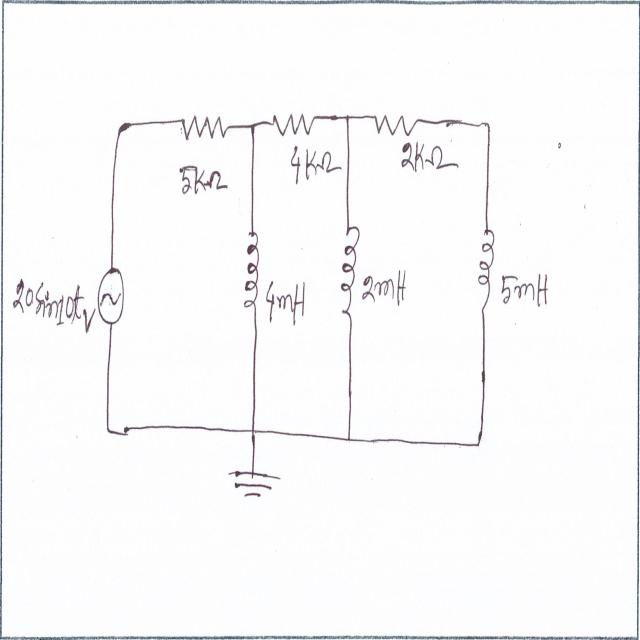 5KΩ
4KΩ
2KΩ
20sin10t V
4mH
2mH
5mH